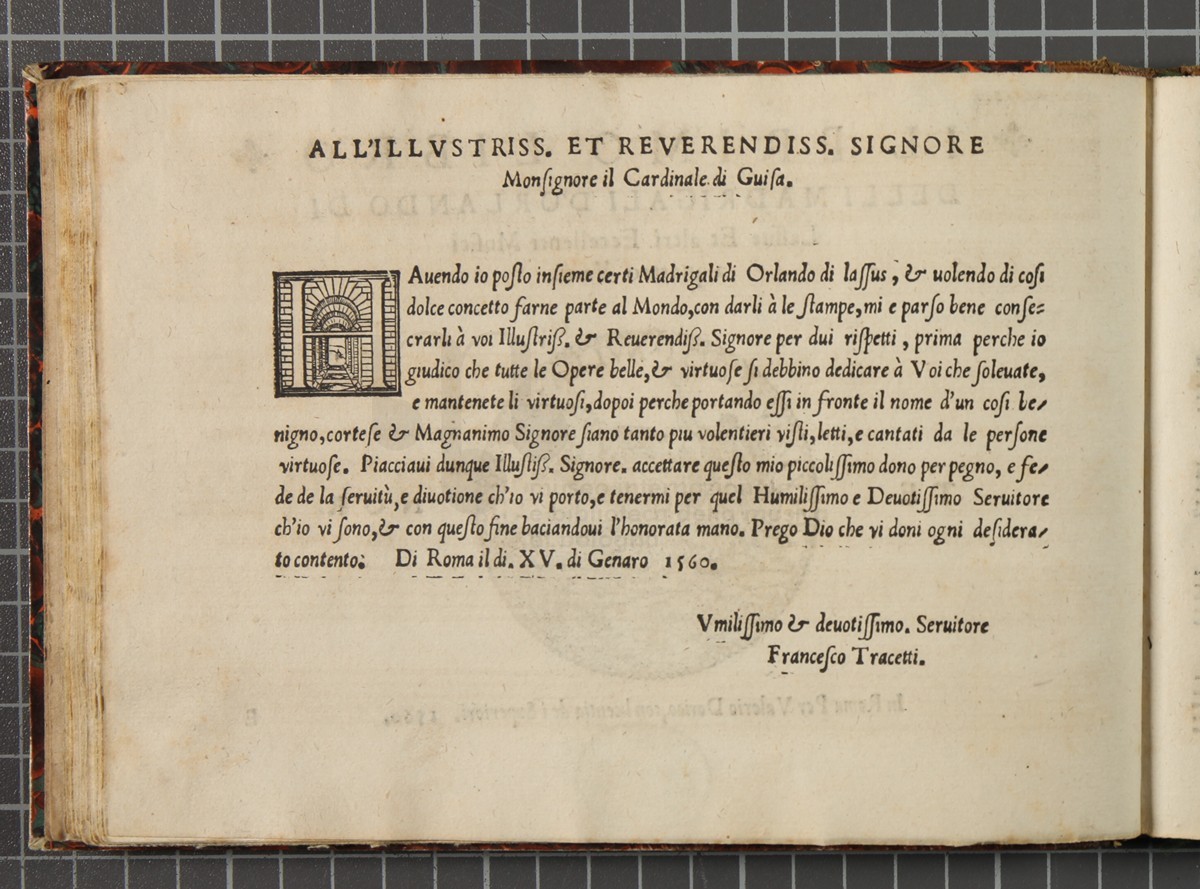 ALL'ILLVSTRISS. ET REVERENDISS. SIGNORE
Monſignore il Cardinale di Guiſa.
HAuendo io poſto inſieme certi Madrigali di Orlando di laſſus, & uolendo di coſi
dolce concetto farne parte al Mondo,con darli à le ſtampe,mi e parſo bene conſe=
crarli à voi Illuſtriß. & Reuerendiß. Signore per dui riſpetti, prima perche io
giudico che tutte le Opere belle,& virtuoſe ſi debbino dedicare à Voi che ſoleuate,
e mantenete li virtuoſi,dopoi perche portando eſſi in fronte il nome d'un coſi be-
nigno,corteſe & Magnanimo Signore ſiano tanto piu volentieri viſti,letti,e cantati da le perſone
virtuoſe. Piacciaui dunque Illuſtiß. Signore. accettare queſto mio piccoliſſimo dono per pegno, e fe-
de de la ſeruitù,e diuotione ch'io vi porto,e tenermi per quel Humiliſſimo e Deuotiſſimo Seruitore
ch'io vi ſono,& con queſto fine baciandoui l'honorata mano. Prego Dio che vi doni ogni deſidera-
to contento: Di Roma il di. XV. di Genaro 1560.
Vmiliſſimo & deuotiſſimo. Seruitore
Franceſco Tracetti.